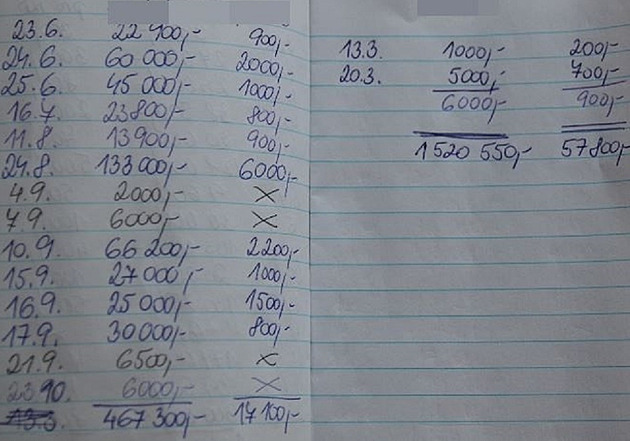 23.6. 22 900,- 900,-
24.6. 60 000,- 2000,-
25.6. 45 000,- 1000,-
16.7. 23 800,- 800,-
11.8. 13 900,- 900,-
24.8. 133 000,- 6000,-
4.9. 2000,- X
7.9. 6000,- X
10.9. 66 200,- 2200,-
15.9. 27 000,- 1000,-
16.9. 25 000,- 1500,-
17.9. 30 000,- 800,-
21.9. 6500,- X
23.10. 6000,- X
467 300,- 17 100,-
13.3. 1000,- 200,-
20.3. 5000,- 700,-
6000,- 900,-
1 520 550,- 57 800,-